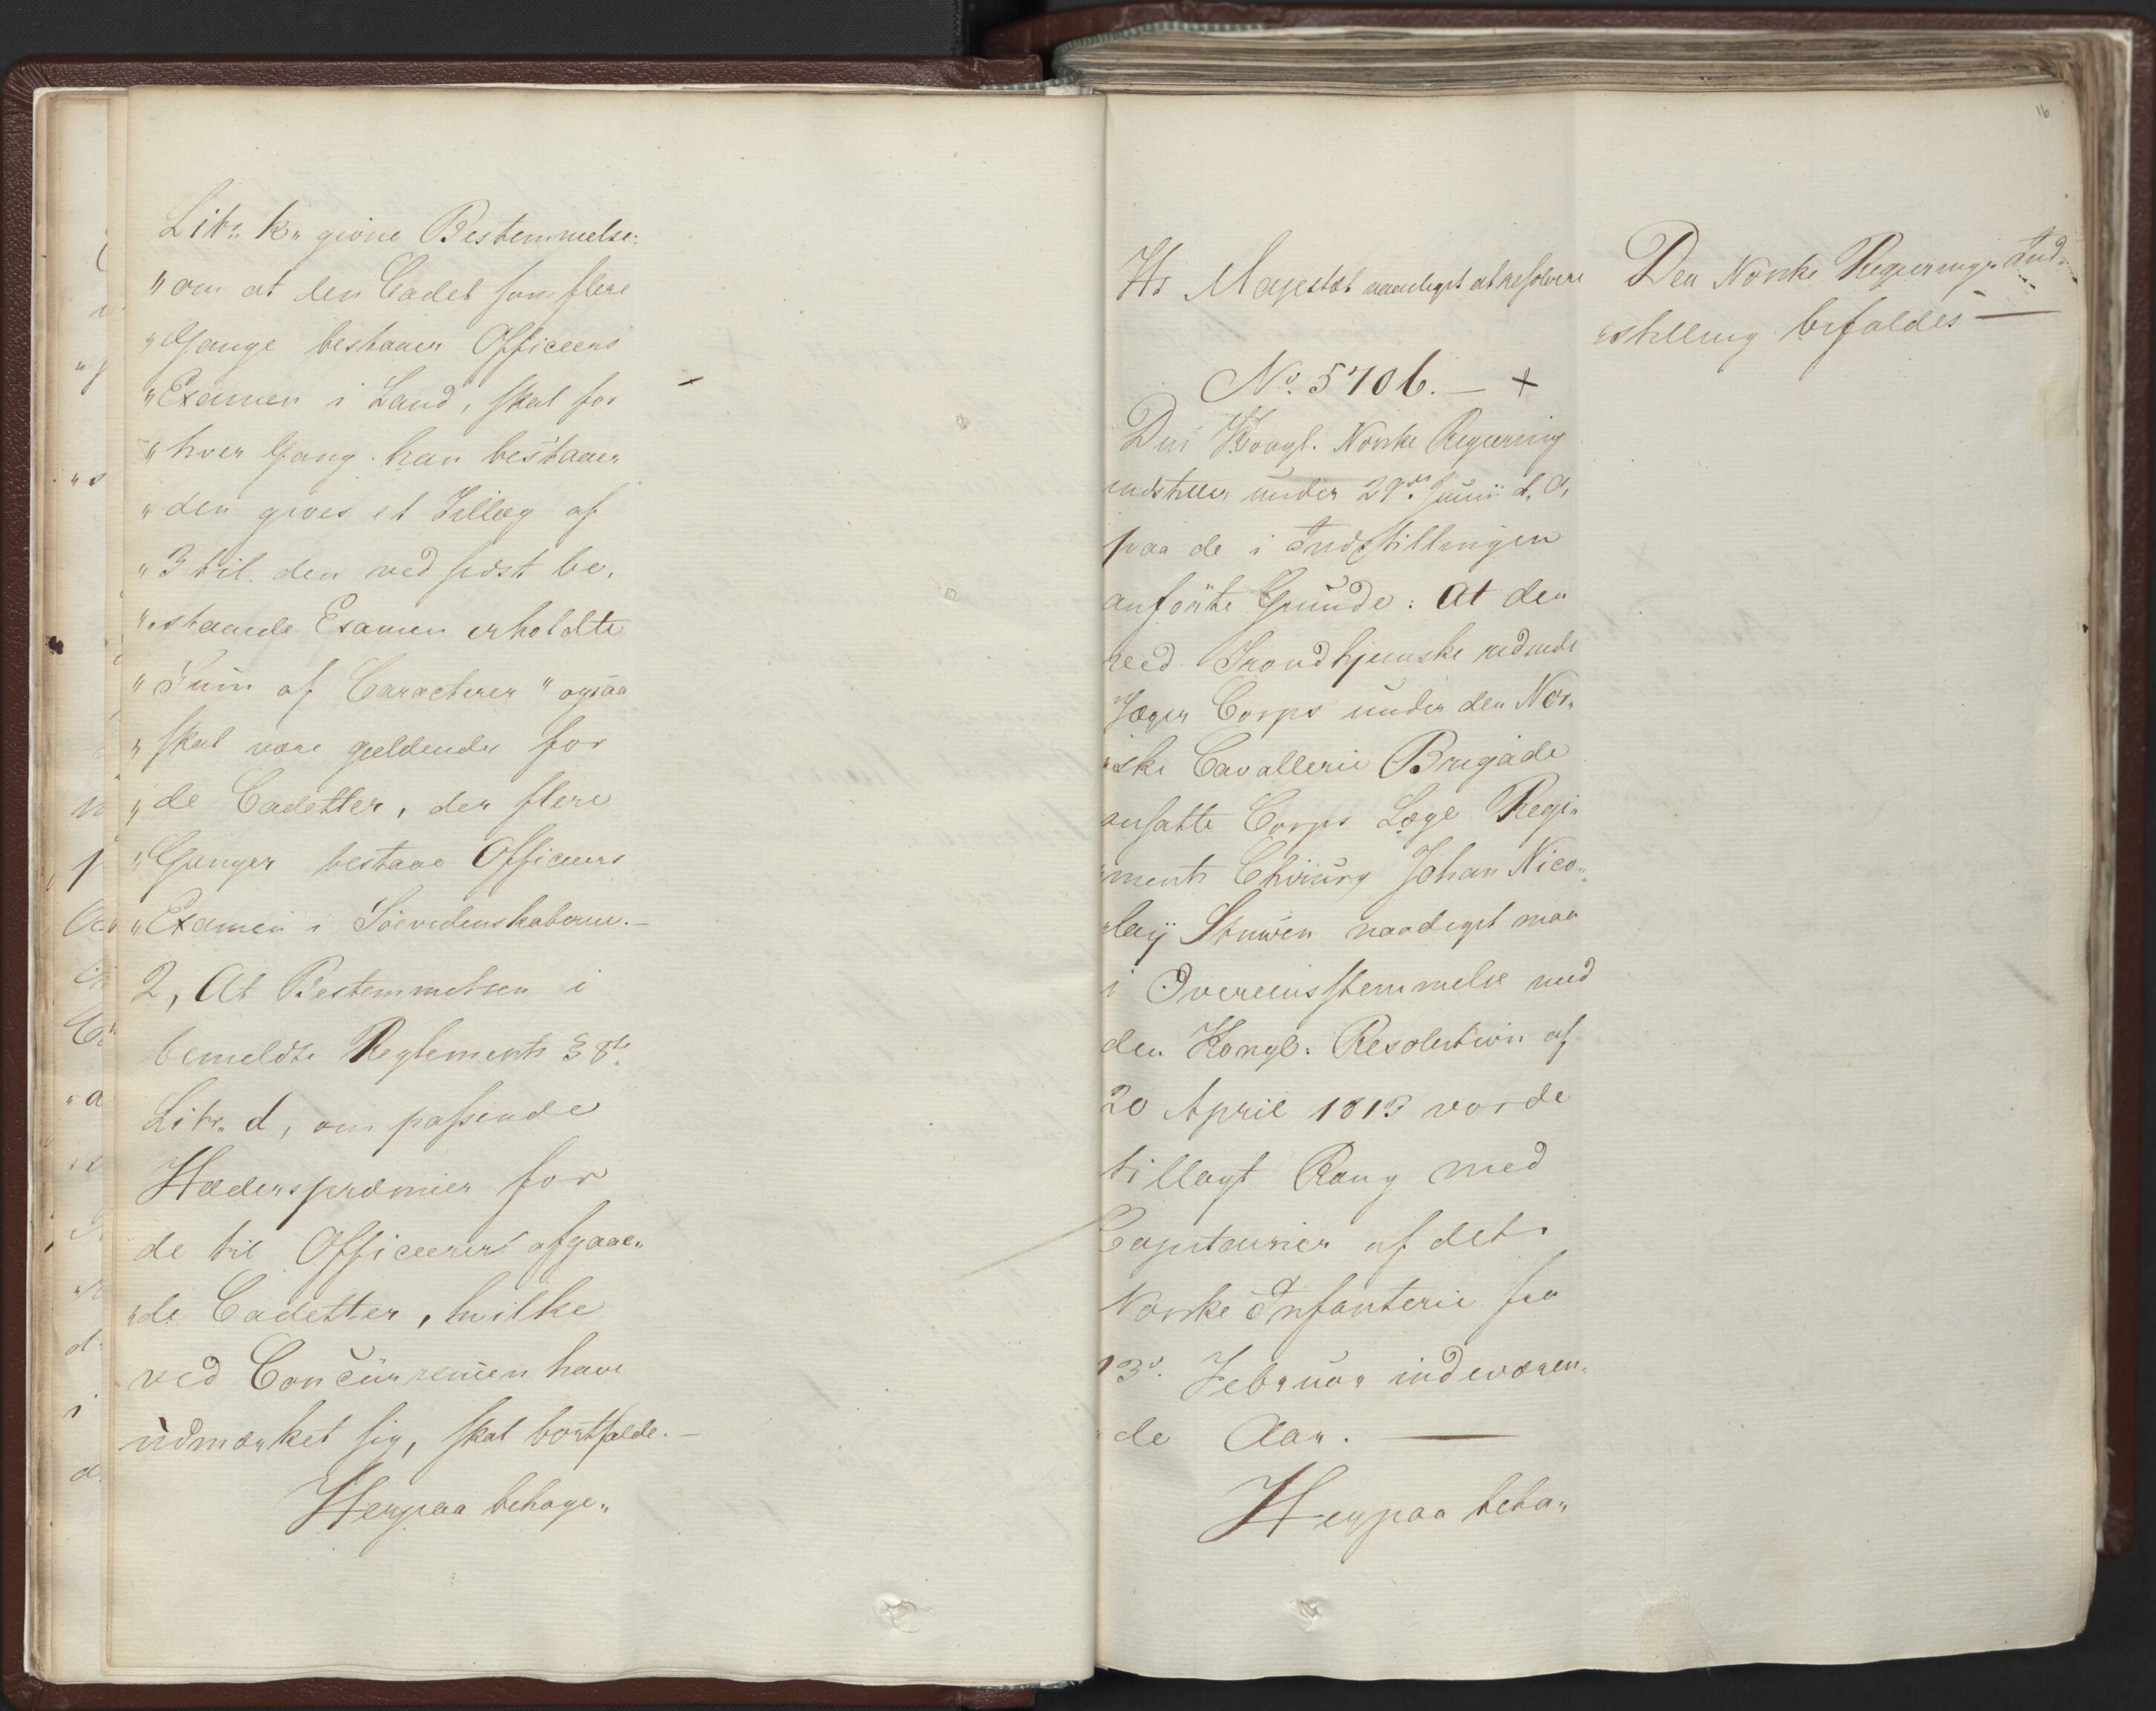 Litr. k„ givne Bestemmelse:
„om at den Cadet som flere
„Gange bestaaer Officeers
„Examen i Land, skal for
„hver Gang han bestaaer
„den gives et Tillæg af
„3 til den ved sidst be„
„staaede Examen erholdte
„Sum af Caracterer" ogsaa
„skal være gieldende for
„de Cadetter, der flere
„Ganger bestaae Officeers
„Examen i Söevidenskaberne.—
2, At Bestemmelsen i
bemeldte Reglements § 8de
Litr. d, om passende
Hæderspræmier for
de til Officeerer afgaae„
„de Cadetter, hvilke
ved Concurrencen have
udmærket sig, skal bortfalde.—
Herpaa behage„
16
Hs Majestæt naadigst at resolvere
No. 5706. — +
Den Kongl. Norske Regiering
indstiller under 29de Junii d. A.
paa de i Indstillingen
anförte Grunde: At den
ved Trondhjemske ridende
Jæger Corps under den Nor„
„ske Cavallerie Brigade
ansatte Corps Læge Regi„
„ments Chirurg Johan Nico„
„laij Stuwen naadigst maa
i Overeensstemmelse med
den Kongl. Resolution af
20 April 1813 vorde
tillagt Rang med
Capitainer af det
Norske Infanterie fra
13de Februar indeværen„
„de Aar. —
Herpaa beha„
Den Norske Regierings Ind„
„stilling bifaldes —